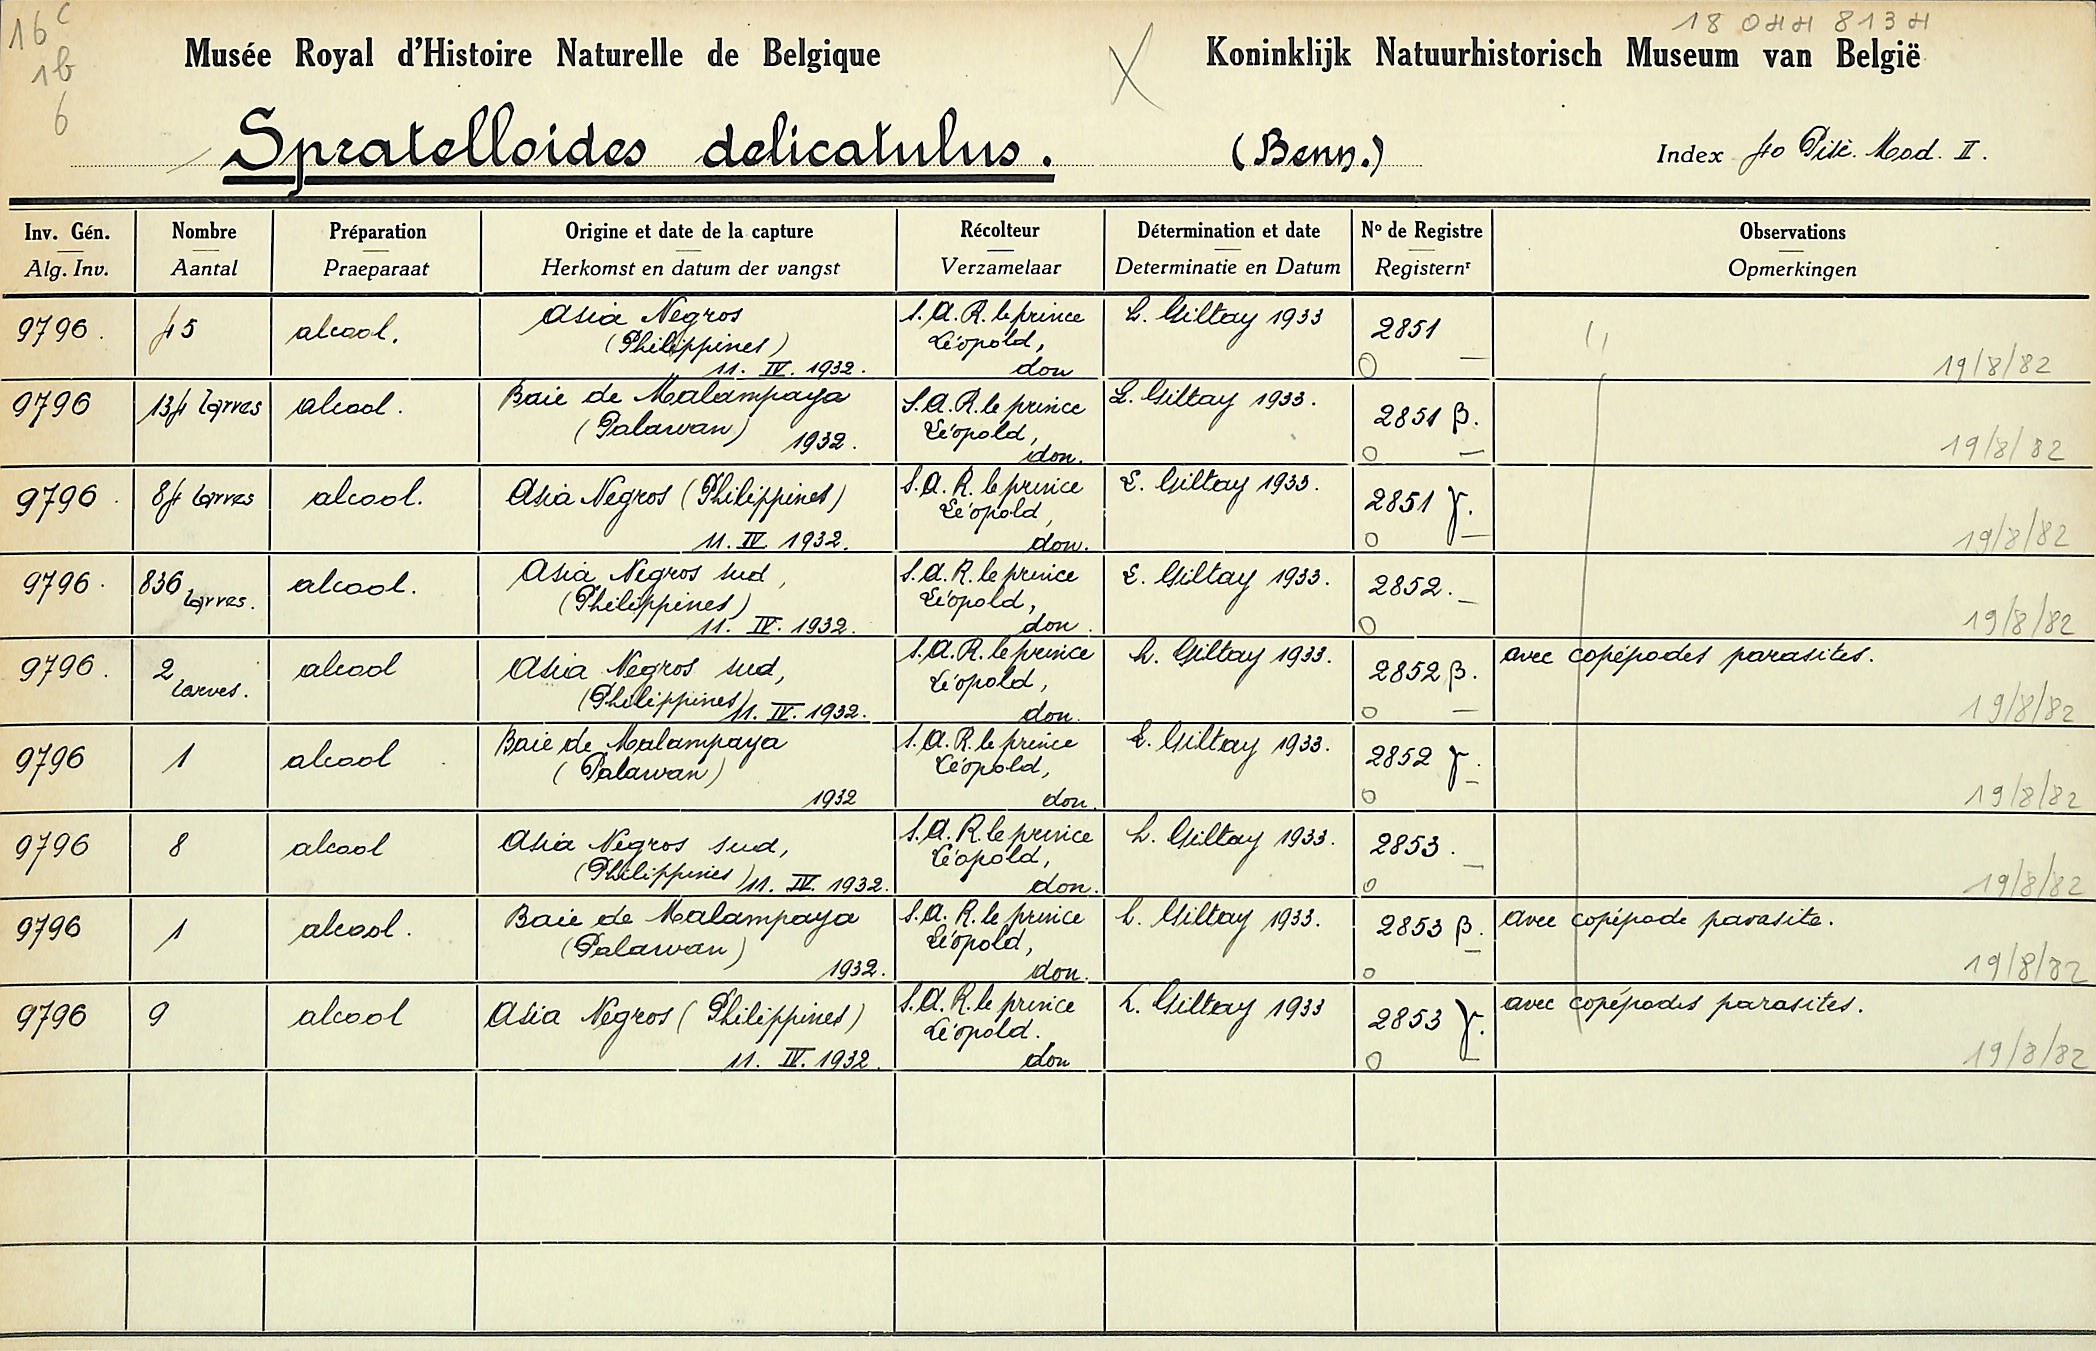 16 c
1b
6
18 044 8134
Musée Royal d'Histoire Naturelle de Belgique X Koninklijk Natuurhistorisch Museum van België
Spratelloides delicatulus. (Benn.) Index 40 Pisc. Mod. II.
Inv. Gén. Nombre Préparation Origine et date de la capture Récolteur Détermination et date No de Registre Observations
Alg. Inv. Aantal Praeparaat Herkomst en datum der vangst Verzamelaar Determinatie en Datum Registernr Opmerkingen
9796. 45 alcool. Asia Negros (Philippines) 11. IV. 1932. S.A.R. le prince Léopold, don L. Giltay 1933 2851 O — 〃 19/8/82
9796 134 larves alcool. Baie de Malampaya (Palawan) 1932. S.A.R. le prince Léopold, don. L. Giltay 1933. 2851 β. O — 19/8/82
9796. 84 larves alcool. Asia Negros (Philippines) 11. IV. 1932. S.A.R. le prince Léopold, don. L. Giltay 1933. 2851 γ. O — 19/8/82
9796. 836 larves. alcool. Asia Negros sud, (Philippines) 11. IV. 1932. S.A.R. le prince Léopold, don. L. Giltay 1933. 2852. O — 19/8/82
9796. 2 larves. alcool Asia Negros sud, (Philippines) 11. IV. 1932. S.A.R. le prince Léopold, don. L. Giltay 1933. 2852 β. O — avec copépodes parasites. 19/8/82
9796 1 alcool Baie de Malampaya (Palawan) 1932 S.A.R. le prince Léopold, don. L. Giltay 1933. 2852 γ. O — 19/8/82
9796 8 alcool Asia Negros sud, (Philippines) 11. IV. 1932. S.A.R. le prince Léopold, don. L. Giltay 1933. 2853. O — 19/8/82
9796 1 alcool. Baie de Malampaya (Palawan) 1932. S.A.R. le prince Léopold, don. L. Giltay 1933. 2853 β. O — avec copépode parasite. 19/8/82
9796 9 alcool Asia Negros (Philippines) 11. IV. 1932. S.A.R. le prince Léopold. don L. Giltay 1933 2853 γ. O — avec copépodes parasites. 19/8/82